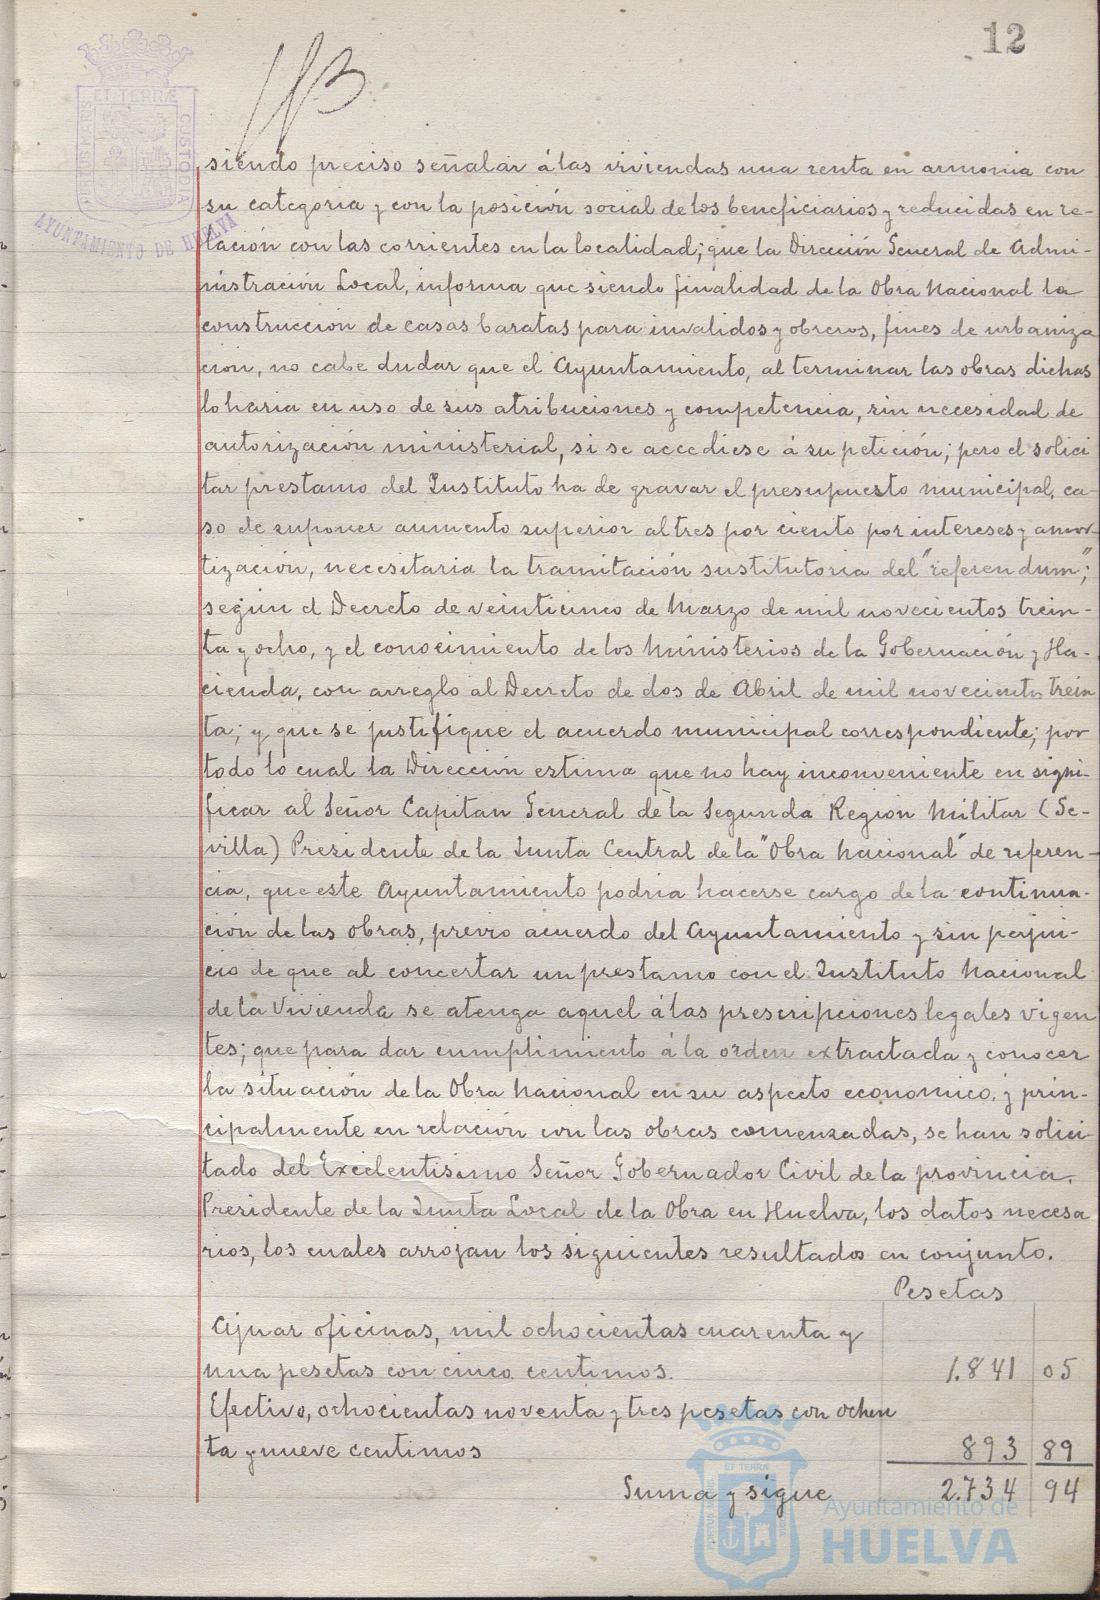 12
ET TERRÆ
CUSTODIA
AYUNTAMIENTO DE HUELVA
siendo preciso señalar á las viviendas una renta en armonia con
su categoria y con la posición social de los beneficiarios y reducidas en re-
lación con las corrientes en la localidad; que la Dirección General de Admi-
nistración Local, informa que siendo finalidad de la Obra Nacional la
construcción de casas baratas para invalidos y obreros, fines de urbaniza
ción, no cabe dudar que el Ayuntamiento, al terminar las obras dichas
lo haria en uso de sus atribuciones y competencia, sin necesidad de
autorización ministerial, si se accediese á su petición; pero el solici
tar prestamo del Instituto ha de gravar el presupuesto municipal, ca-
so de suponer aumento superior al tres por ciento por intereses y amor-
tización, necesitaria la tramitación sustitutoria del "referendum";
según el Decreto de veinticinco de Marzo de mil novecientos trein-
ta y ocho, y el conocimiento de los Ministerios de la Gobernación y Ha-
cienda, con arreglo al Decreto de dos de Abril de mil novecientos trein
ta; y que se justifique el acuerdo municipal correspondiente; por
todo lo cual la Dirección estima que no hay inconveniente en signi-
ficar al Señor Capitan General de la Segunda Region Militar (Se-
villa) Presidente de la Junta Central de la "Obra Nacional" de referen-
cia, que este Ayuntamiento podria hacerse cargo de la continua-
ción de las obras, previo acuerdo del Ayuntamiento y sin perjui-
cio de que al concertar un prestamo con el Instituto Nacional
de la Vivienda se atenga aquel á las prescripciones legales vigen
tes; que para dar cumplimiento á la orden extractada y conocer
la situación de la Obra Nacional en su aspecto economico, y prin-
cipalmente en relación con las obras comenzadas, se han solici-
tado del Excelentisimo Señor Gobernador Civil de la provincia,
Presidente de la Junta Local de la Obra en Huelva, los datos necesa
rios, los cuales arrojan los siguientes resultados en conjunto.
Pesetas
Ajuar oficinas, mil ochocientas cuarenta y
una pesetas con cinco centimos. 1.841 05
Efectivo, ochocientas noventa y tres pesetas con ochen
ta y nueve centimos 893 89
Suma y sigue 2.734 94
Ayuntamiento de
HUELVA